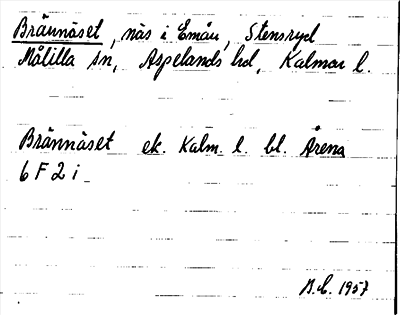 Brännäset, näs i Emån, Stensryd
Målilla sn, Aspelands hd, Kalmar l.
Brännäset ek. Kalm. l. bl. Årena
6 F 2 i
B.E. 1957